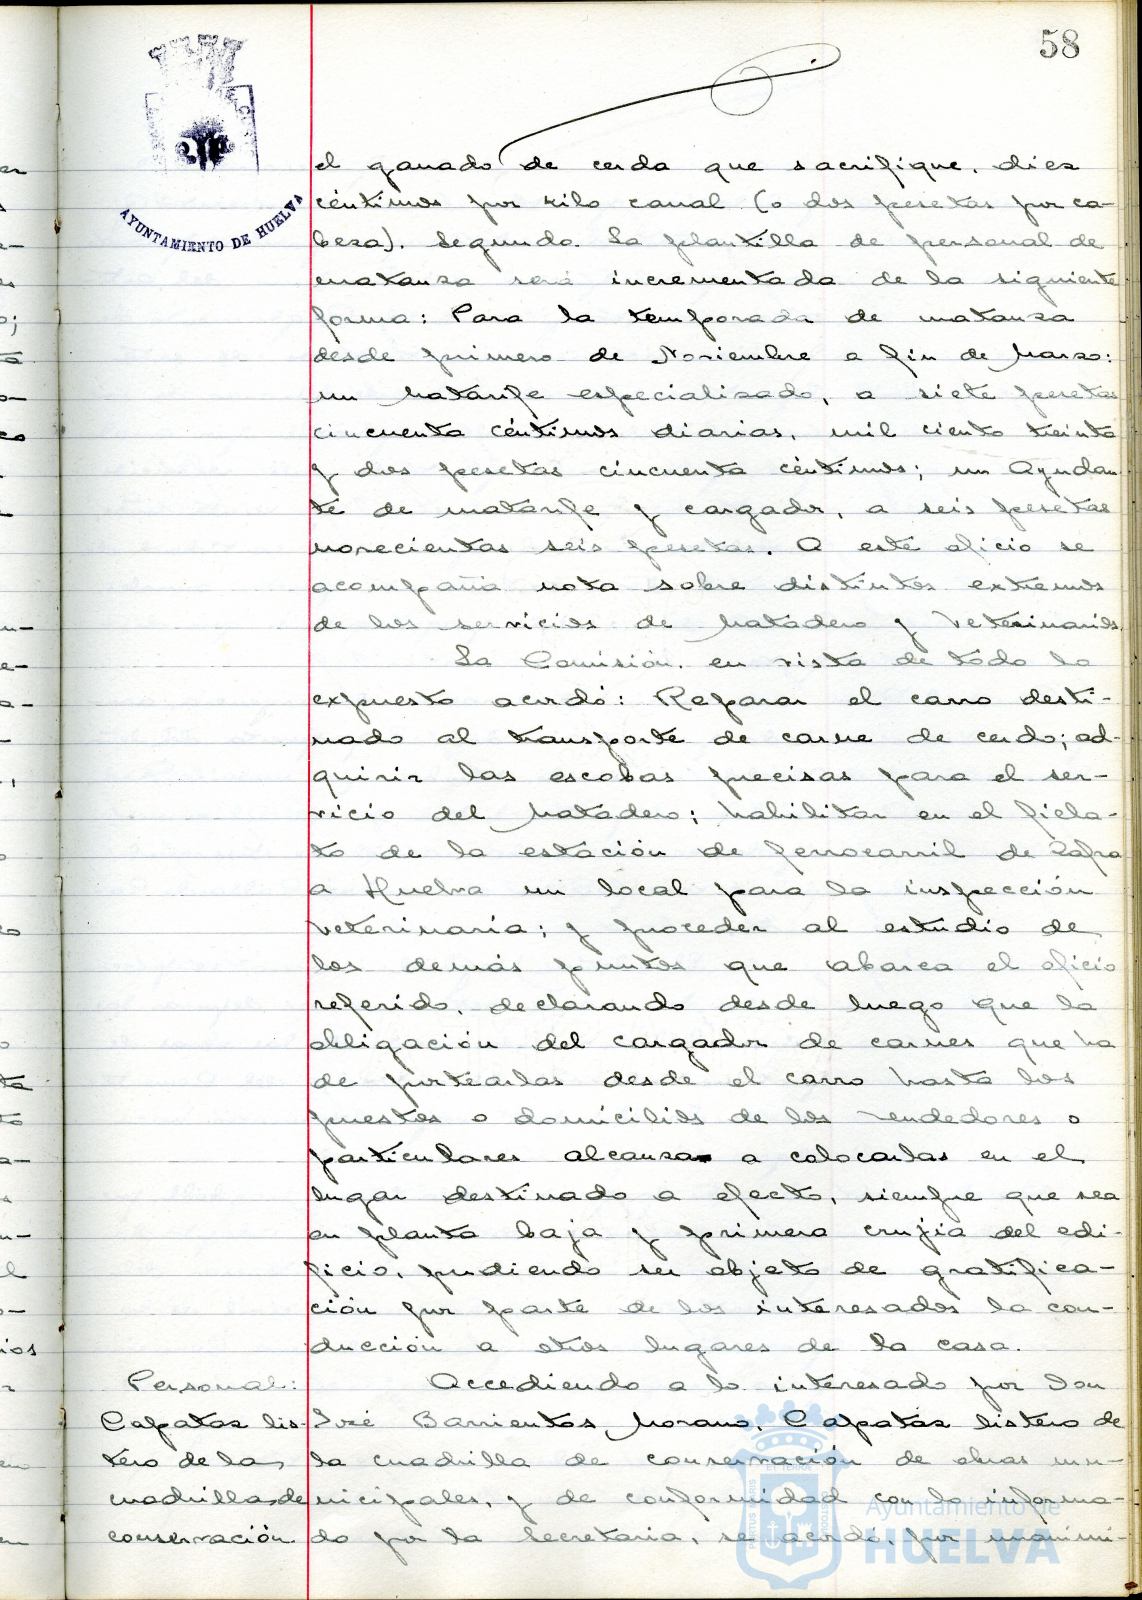 58
AYUNTAMIENTO DE HUELVA
el ganado de cerda que sacrifique, diez
céntimos por kilo canal (o dos pesetas por ca-
beza). Segundo. La plantilla de personal de
matanza será incrementada de la siguiente
forma: Para la temporada de matanza
desde primero de Noviembre a fin de Marzo:
un Matarife especializado, a siete pesetas
cincuenta céntimos diarias, mil ciento treinta
y dos pesetas cincuenta céntimos; un Ayudan-
te de matarife y cargador, a seis pesetas
novecientas seis pesetas. A este oficio se
acompaña nota sobre distintos extremos
de los servicios de Matadero y Veterinarios.
La Comisión, en vista de todo lo
expuesto acordó: Reparar el carro desti-
nado al transporte de carne de cerdo; ad-
quirir las escobas precisas para el ser-
vicio del Matadero; habilitar en el fiela-
to de la estación de ferrocarril de Zafra
a Huelva un local para la inspección
veterinaria; y proceder al estudio de
los demás puntos que abarca el oficio
referido, declarando desde luego que la
obligación del cargador de carnes que ha
de portearlas desde el carro hasta los
puestos o domicilios de los vendedores o
particulares alcanza a colocarlas en el
lugar destinado a efecto, siempre que sea
en planta baja y primera crujía del edi-
ficio, pudiendo ser objeto de gratifica-
ción por parte de los interesados la con-
ducción a otros lugares de la casa.
Personal:
Capataz lis-
tero de la
cuadrilla de
conservación.
Accediendo a lo interesado por Don
José Barrientos Morano, Capataz listero de
la cuadrilla de conservación de obras mu-
nicipales, y de conformidad con lo informa-
do por la Secretaría, se acordó, por unanimi-
Ayuntamiento de
HUELVA